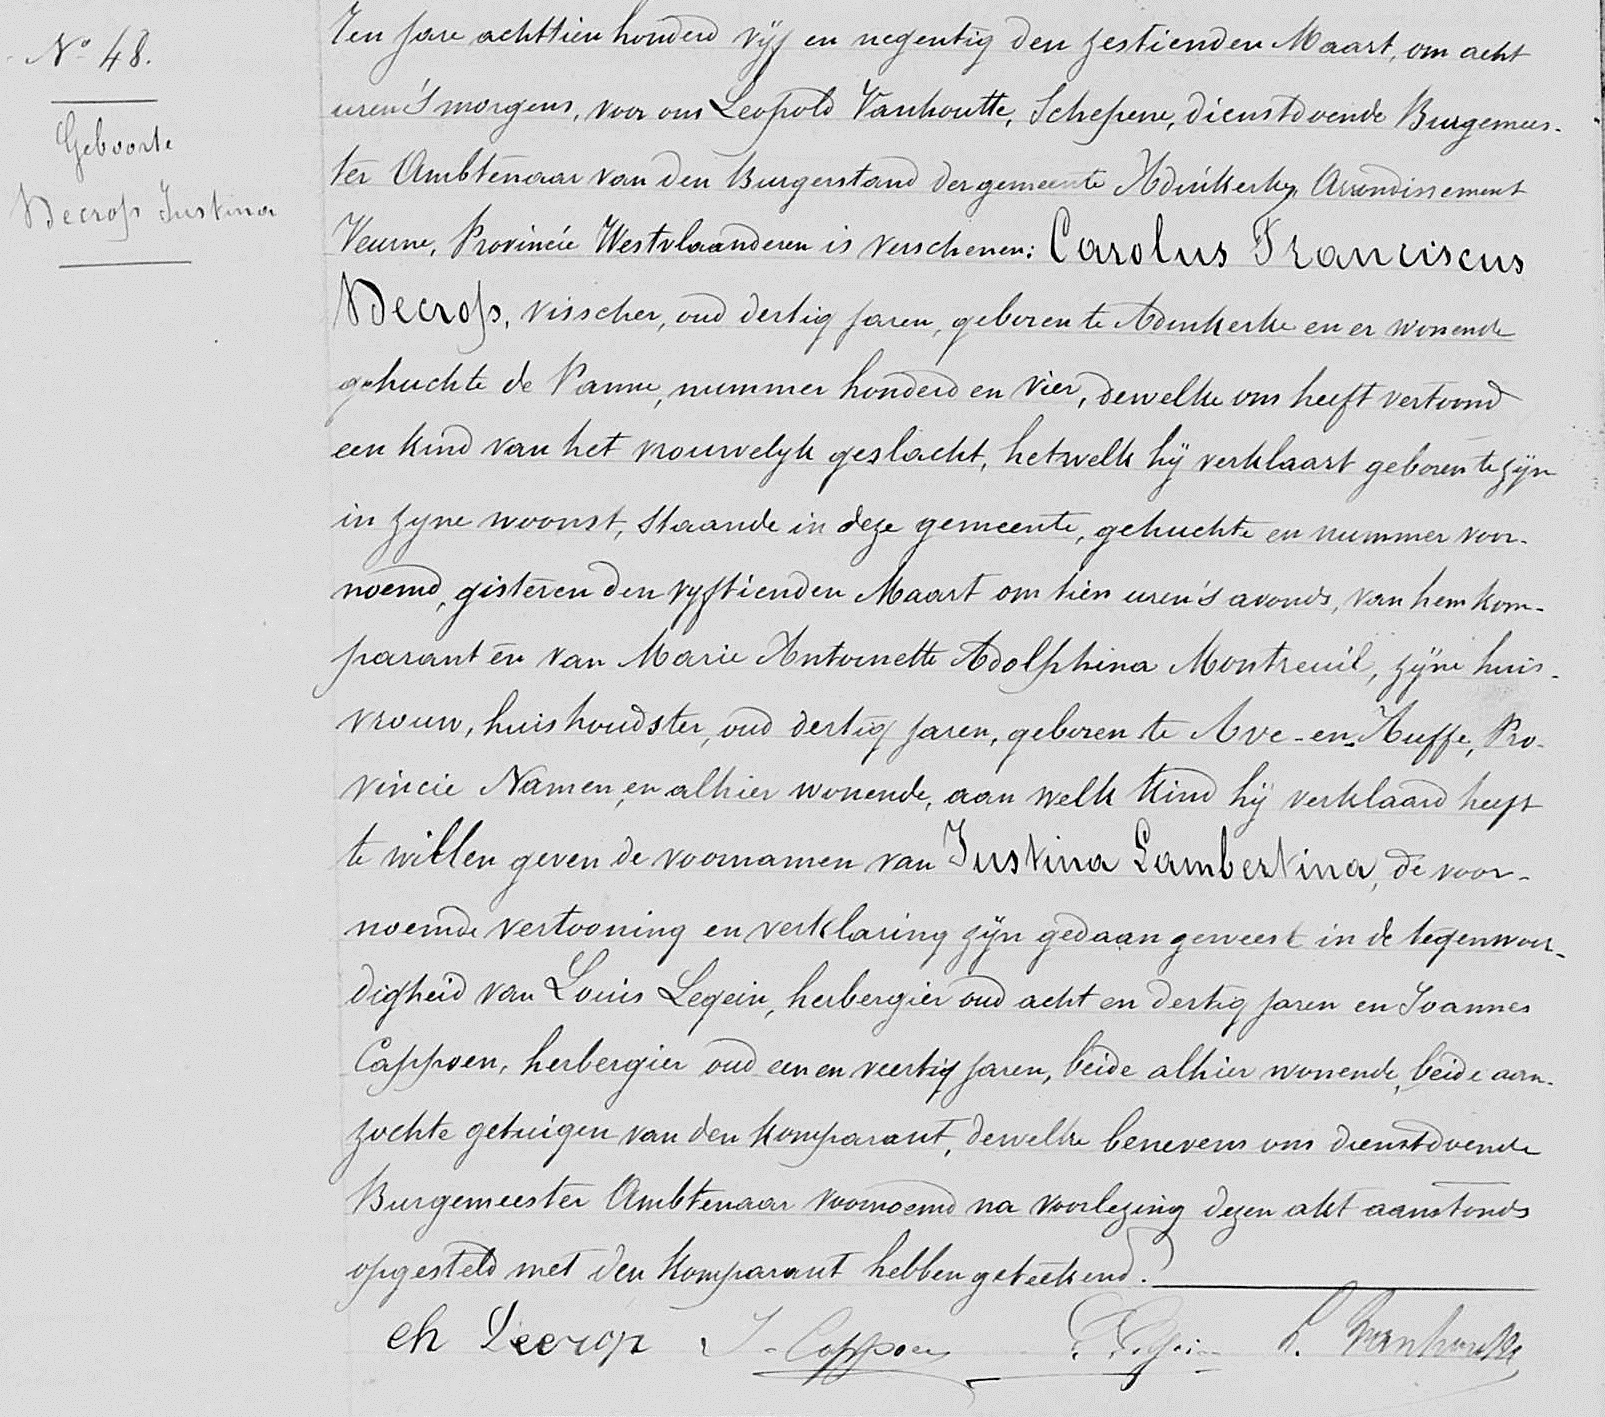 Nº 48.
Geboorte
Decrop Justina
Ten jare achttien honderd vyf en negentig den zestienden Maart, om acht
uren 's morgens, voor ons Leopold Vanhoutte, Schepene, dienstdoende Burgemees-
ter Ambtenaar van den Burgerstand der gemeente Adinkerke, Arrondissement
Veurne, Provincie Westvlaanderen is verschenen: Carolus Franciscus
Decrop, visscher, oud dertig jaren, geboren te Adinkerke en er wonende
gehuchte de Panne, nummer honderd en vier, dewelke ons heeft vertoond
een kind van het vrouwelyk geslacht, hetwelk hy verklaart geboren te zyn
in zyne woonst, staande in deze gemeente, gehuchte en nummer voor-
noemd, gisteren den vyftienden Maart om tien uren 's avonds, van hem kom-
parant en van Marie Antoinette Adolphina Montreuil, zyne huis-
vrouw, huishoudster, oud dertig jaren, geboren te Ave-en-Auffe, Pro-
vincie Namen, en alhier wonende, aan welk kind hy verklaard heeft
te willen geven de voornamen van Justina Lambertina, de voor-
noemde vertooning en verklaring zyn gedaan geweest in de tegenwoor-
digheid van Louis Legein, herbergier oud acht en dertig jaren en Joannes
Cappoen, herbergier oud een en veertig jaren, beide alhier wonende, beide aan-
zochte getuigen van den komparant, dewelke benevens ons dienstdoende
Burgemeester Ambtenaar voornoemd na voorlezing dezen akt aanstonds
opgesteld met den komparant hebben geteekend.
ch Decrop J. Cappoen L. Legein L. Vanhoutte